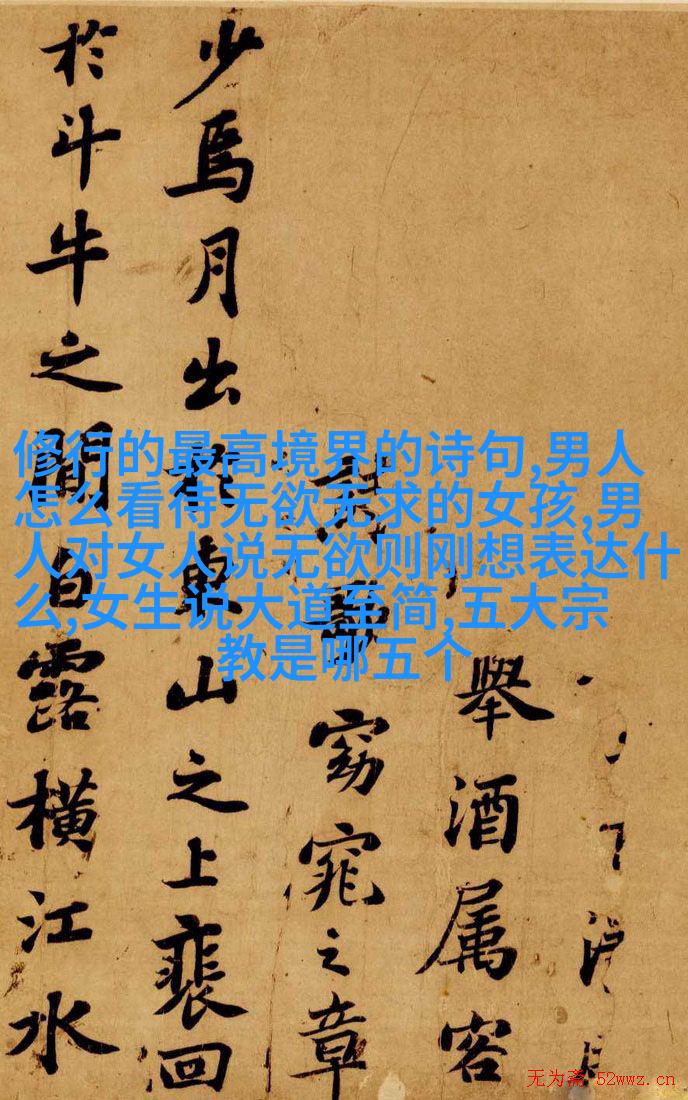 舉酒属客
窈窕之章
少焉月出於東山之上裴回
於斗牛之間白露橫江水
修行的最高境界的诗句,男人
怎么看待无欲无求的女孩,男
人对女人说无欲则刚想表达什
么,女生说大道至简,五大宗
教是哪五个
无为斋 52wwz.cn